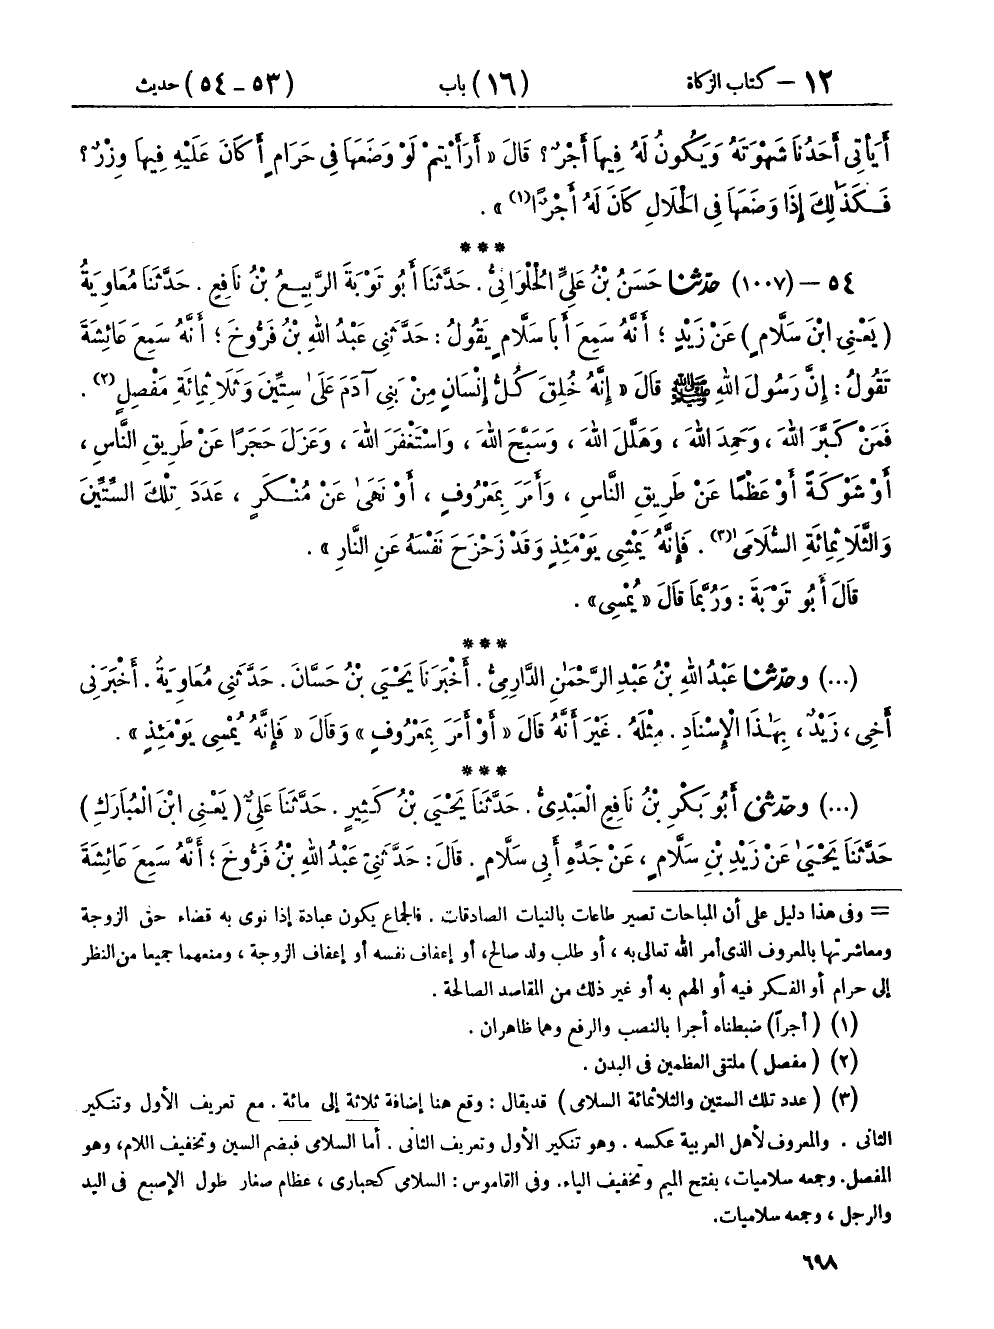 ١٢ – كتاب الزكاة (١٦) باب (٥٣ – ٥٤) حديث
أَيَأْتِي أَحَدُنَا شَهْوَتَهُ وَيَكُونُ لَهُ فِيهَا أَجْرٌ؟ قَالَ « أَرَأَيْتُمْ لَوْ وَضَعَهَا فِي حَرَامٍ أَكَانَ عَلَيْهِ فِيهَا وِزْرٌ؟
فَكَذَٰلِكَ إِذَا وَضَعَهَا فِي الْحَلَالِ كَانَ لَهُ أَجْرًا(١) » .
***
٥٤ – (١٠٠٧) حدّثنا حَسَنُ بْنُ عَلِيٍّ الْحُلْوَانِيُّ . حَدَّثَنَا أَبُو تَوْبَةَ الرَّبِيعُ بْنُ نَافِعٍ . حَدَّثَنَا مُعَاوِيَةُ
( يَعْنِي ابْنَ سَلَّامٍ ) عَنْ زَيْدٍ ؛ أَنَّهُ سَمِعَ أَبَا سَلَّامٍ يَقُولُ : حَدَّثَنِي عَبْدُ اللهِ بْنُ فَرُّوخَ ؛ أَنَّهُ سَمِعَ عَائِشَةَ
تَقُولُ : إِنَّ رَسُولَ اللهِ ﷺ قَالَ « إِنَّهُ خُلِقَ كُلُّ إِنْسَانٍ مِنْ بَنِي آدَمَ عَلَىٰ سِتِّينَ وَثَلَاثِمِائَةِ مَفْصِلٍ(٢) .
فَمَنْ كَبَّرَ اللهَ ، وَحَمِدَ اللهَ ، وَهَلَّلَ اللهَ ، وَسَبَّحَ اللهَ ، وَاسْتَغْفَرَ اللهَ ، وَعَزَلَ حَجَرًا عَنْ طَرِيقِ النَّاسِ ،
أَوْ شَوْكَةً أَوْ عَظْمًا عَنْ طَرِيقِ النَّاسِ ، وَأَمَرَ بِمَعْرُوفٍ ، أَوْ نَهَىٰ عَنْ مُنْكَرٍ ، عَدَدَ تِلْكَ السِّتِّينَ
وَالثَّلَاثِمِائَةِ السُّلَامَىٰ(٣) . فَإِنَّهُ يَمْشِي يَوْمَئِذٍ وَقَدْ زَحْزَحَ نَفْسَهُ عَنِ النَّارِ » .
قَالَ أَبُو تَوْبَةَ : وَرُبَّمَا قَالَ « يُمْسِي » .
***
(...) وحدّثنا عَبْدُ اللهِ بْنُ عَبْدِ الرَّحْمَٰنِ الدَّارِمِيُّ . أَخْبَرَنَا يَحْيَىٰ بْنُ حَسَّانَ . حَدَّثَنِي مُعَاوِيَةُ . أَخْبَرَنِي
أَخِي ، زَيْدٌ ، بِهَٰذَا الْإِسْنَادِ . مِثْلَهُ . غَيْرَ أَنَّهُ قَالَ « أَوْ أَمَرَ بِمَعْرُوفٍ » وَقَالَ « فَإِنَّهُ يُمْسِي يَوْمَئِذٍ » .
***
(...) وحدّثني أَبُو بَكْرِ بْنُ نَافِعٍ الْعَبْدِيُّ . حَدَّثَنَا يَحْيَىٰ بْنُ كَثِيرٍ . حَدَّثَنَا عَلِيٌّ ( يَعْنِي ابْنَ الْمُبَارَكِ )
حَدَّثَنَا يَحْيَىٰ عَنْ زَيْدِ بْنِ سَلَّامٍ ، عَنْ جَدِّهِ أَبِي سَلَّامٍ . قَالَ : حَدَّثَنِي عَبْدُ اللهِ بْنُ فَرُّوخَ ؛ أَنَّهُ سَمِعَ عَائِشَةَ
= وفى هذا دليل على أن المباحات تصير طاعات بالنيات الصادقات . فالجماع يكون عبادة إذا نوى به قضاء حق الزوجة
ومعاشرتها بالمعروف الذى أمر الله تعالى به ، أو طلب ولد صالح، أو إعفاف نفسه أو إعفاف الزوجة ، ومنعهما جميعا من النظر
إلى حرام أو الفكر فيه أو الهم به أو غير ذلك من المقاصد الصالحة .
(١) ( أجراً ) ضبطناه أجرا بالنصب والرفع وهما ظاهران .
(٢) ( مفصل ) ملتقى العظمين فى البدن .
(٣) ( عدد تلك الستين والثلاثمائة السلامى ) قد يقال : وقع هنا إضافة ثلاثة إلى مائة . مع تعريف الأول وتنكير
الثانى . والمعروف لأهل العربية عكسه . وهو تنكير الأول وتعريف الثانى . أما السلامى فبضم السين وتخفيف اللام، وهو
المفصل. وجمعه سلاميات، بفتح الميم وتخفيف الياء. وفى القاموس : السلامى كحبارى ، عظام صغار طول الإصبع فى اليد
والرجل ، وجمعه سلاميات.
٦٩٨